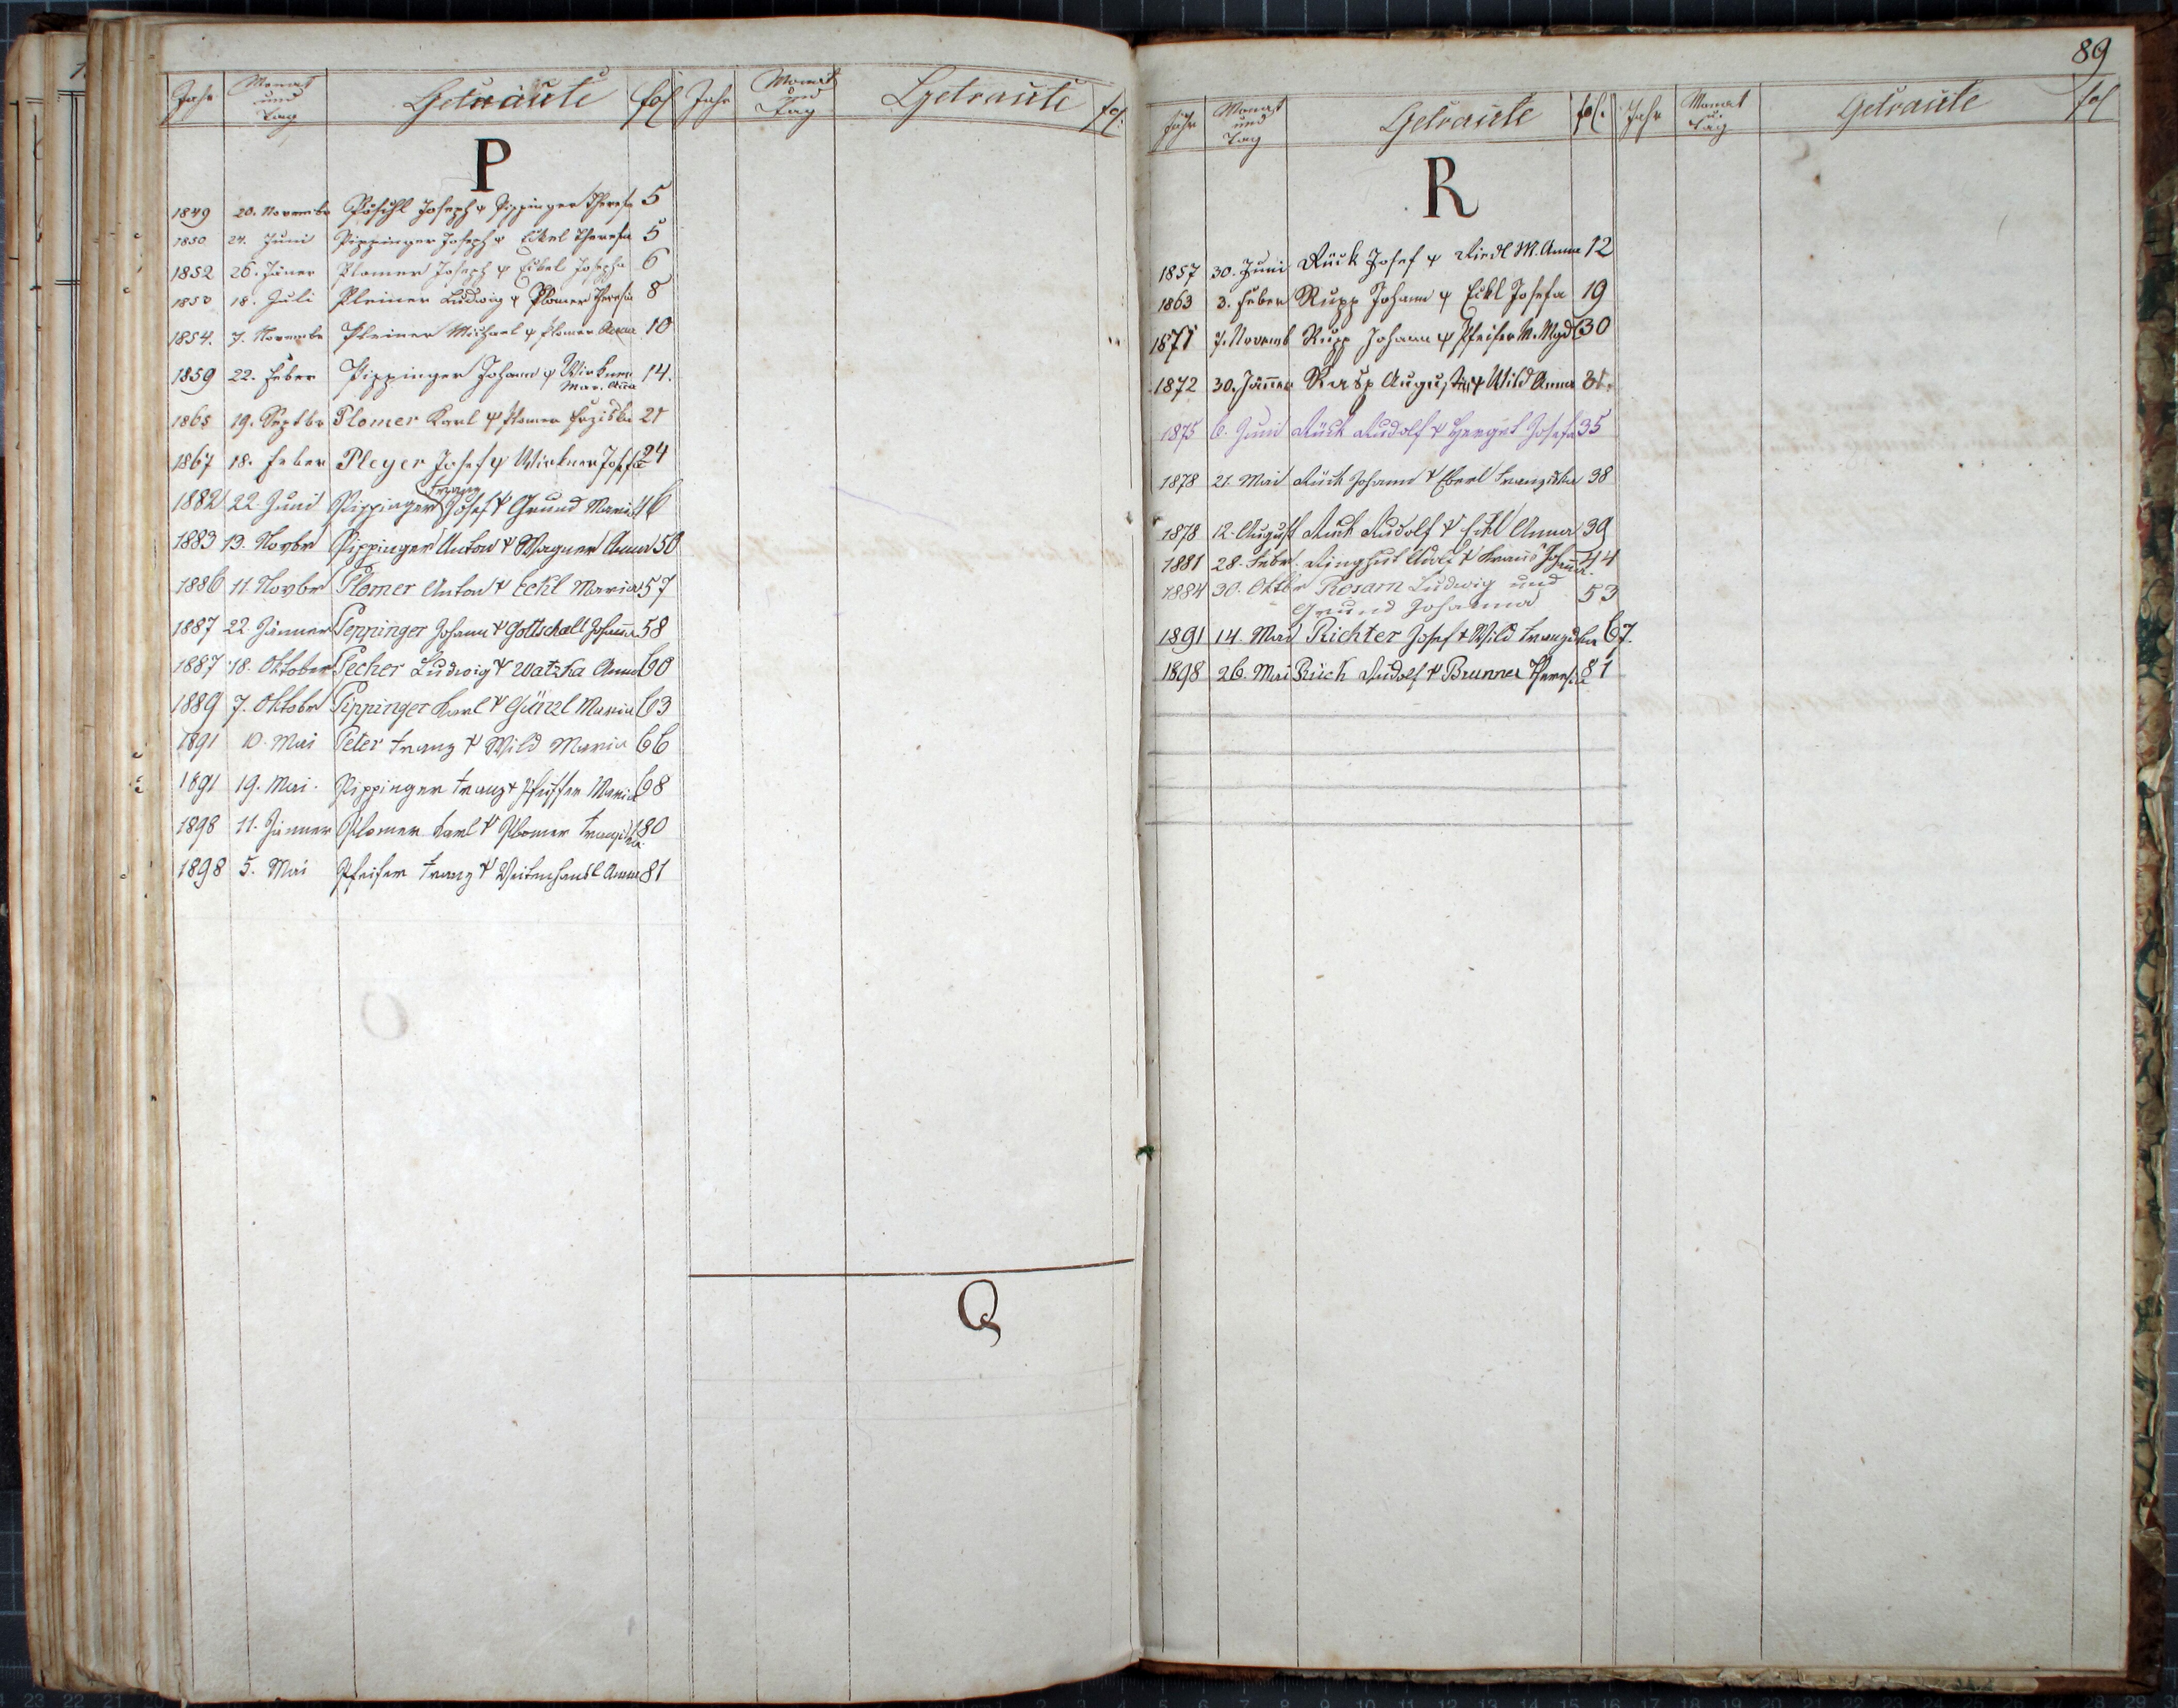 Jahr Monat und Tag Getraute fol. Jahr Monat und Tag Getraute fol.
P
1849 20. Novembr Pöschl Joseph & Pippinger Theresia 5
1850 24. Juni Pippinger Joseph & Eckel Theresia 5
1852 26. Jäner Plomer Joseph & Eckel Josepha 6
1853 18. Juli Pleiner Ludwig & Plomer Theresia 8
1854. 7. Novembr Pleiner Michael & Plomer Anna 10
1859 22. Feber Pippinger Johann & Wirkner Mar. Anna 14.
1865 19. Septbr Plomer Karl & Plomer Frziska 21
1867 18. Feber Pleyer Josef & Wirkner Josefa 24
1882 22. Juni Pippinger Franz Josef & Grund Maria 46
1883 13. Novbr Pippinger Anton & Wagner Anna 50
1886 11. Novbr Plomer Anton & Eckl Maria 57
1887 22. Jänner Peppinger Johann & Gottschall Johanna 58
1887 18. Oktober Pecher Ludwig & Watzka Anna 60
1889 7. Oktobr Pippinger Karl & Günzl Maria 63
1891 10. Mai Peter Franz & Wild Maria 66
1891 19. Mai. Pippinger Franz & Pfeiffer Maria 68
1898 11. Jänner Plomer Karl & Plomer Franziska 80
1898 5. Mai Pfeifer Franz & Veitenhansl Anna 81
Q
89
Jahr Monat und Tag Getraute fol. Jahr Monat u Tag Getraute fol
R
1857 30. Juni Rück Josef & Riedl M. Anna 12
1863 3. Feber Rupp Johann & Eckl Josefa 19
1871 7. Novemb Rupp Johann & Pfeifer M. Magd 30
1872 30. Jänner Rasp Augustin & Wild Anna 31.
1875 6. Juni Rück Rudolf & Herget Josefa 35
1878 21. Mai Rück Johann & Eberl Franziska 38
1878 12. August Rück Rudolf & Eckl Anna 39
1881 28. Febr. Ringhut Adolf & Kraus Johanna. 44
1884 30. Oktbr Rosam Ludwig und
Grund Johanna 53
1891 14. Mai Richter Josef & Wild Franziska 67.
1898 26. Mai Rück Rudolf & Brunner Theresia 81